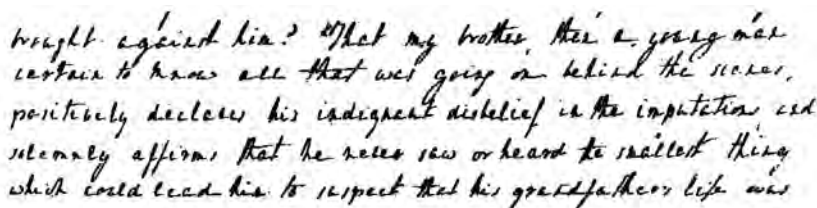 brought against him? That my brother, then a young man
certain to know all that was going on behind the scenes,
positively declares his indignant disbelief in the imputations and
solemnly affirms that he never saw or heard the smallest thing
which could lead him to suspect that his grandfather's life was